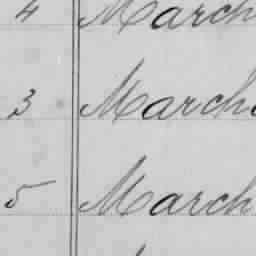 4 March
3 March
5 March